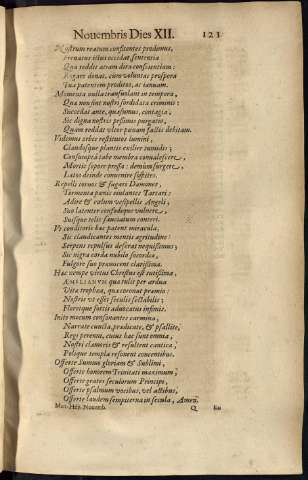 Nouembris Dies XII. 121
Nostrum reatum confitentes prodimus,
Seruatus illius occidat sententia
Qua reddit atram dira conscientiam:
Rogare donat, cum voluntas prospera
Tua patentem proditos, ac ianuam.
Momenta nulla transuolant in tempora,
Qua non sint nostri sordidata criminis:
Succedas ante, quæsumus, contagia,
Sic digna nostris pessimis purgatis,
Quam reddat vltor panam fassis debitam.
Vidimus orbes restitutos lumini,
Claudosque plantis exilire tumidis;
Consumpta tabe membra conualescere,
Mortis sopore pressa: demum surgere,
Latos deinde conuenire sospites.
Repelli toruos & fugari Dæmones,
Tormenta panis eiulantes Tartari:
Adire & cœtum vespellis Angeli,
Suo latenter confodique vulnere,
Suisque telis sauciatum conteri.
Pe conditoris hæc patent miracula,
Sic claudicantes mentis ægritudine:
Serpens repulsus deserat nequissimus:
Sic nigra corda nubilo socordia,
Fulgore suo promicent clarissima.
Hac nempe virtus Christus est tutissima,
ÆMILIANVM qua tulit per ardua
Vita trophæa, qua coronat præmia:
Nostris vt esset seculis sectabilis;
Floreique sortis aduocatus insimis.
Inito mecum consonantes carmina,
Narrate cuncta, prædicate, & psallite,
Regi perenni, cuius hæc sunt omnia,
Nostri clamoris & resultent cantica,
Poloque templa resonent concentibus.
Offerte Summo gloriam & Sublimi,
Offerte honorem Trinitati maximum;
Offerte grates seculorum Principi,
Offerte psalmum vocibus, vel actibus,
Offerte laudem sempiterna in secula, Amen.
Mart. Hisp. Nouemb. Q Eiu